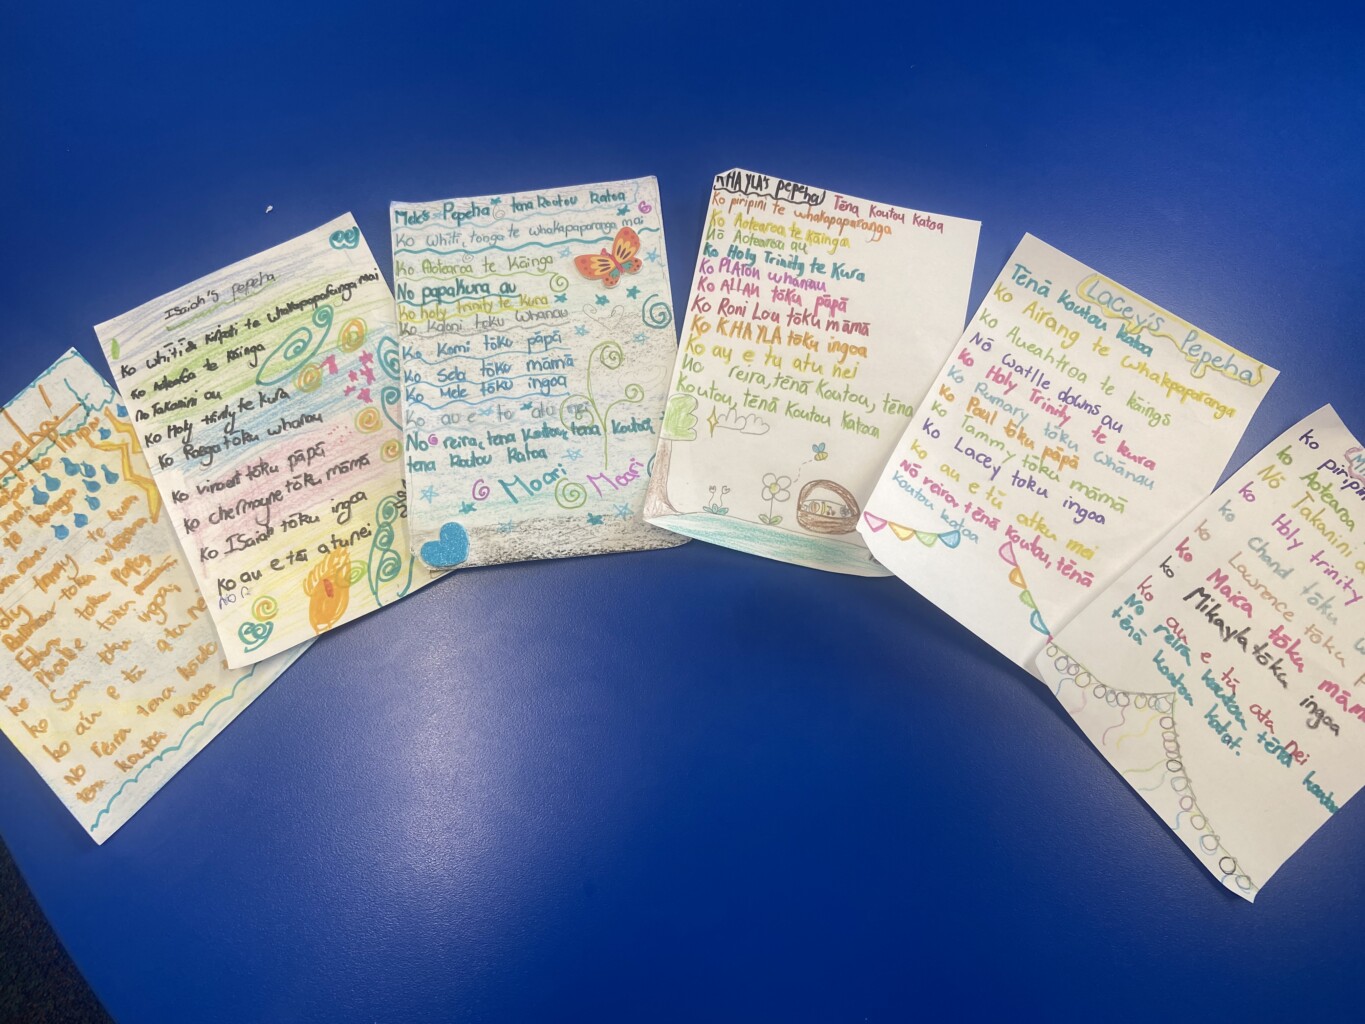 pepeha
Piripini
te kura
tōku whānau
tōku pāpā
Sam tōku ingoa
ko au e tū atu ne
No reira tena koutou
tena koutou katoa
Isaiah's pepeha
Ko whiti & kiripati te whakapapaRanga mai
Ko AoteaRoa te kāinga
no Takanini au
Ko Holy trinity te kura
Ko Raega tōku whanau
Ko vincent tōku pāpā
Ko chermayne tōku māmā
Ko ISaiah tōku ingoa
Ko au e tū atu nei
no R
Mele's Pepeha tena Koutou Katoa
Ko whiti, tonga te whakapaparanga mai
Ko Aotearoa te Kāinga
No papakura au
Ko holy trinity te kura
Ko Kaloni toku whanau
Ko Komi tōku pāpā
Ko Seb tōku māmā
Ko Mele tōku ingoa
Ko au e to atu nei
No reira, tena koutou, tena koutou,
tena koutou katoa
Moari Moari
KHAYLA's pepeha Tēna Koutou Katoa
Ko piripini te whakapaparanga
Ko Aotearoa te kāinga
Nō Aotearoa au
Ko Holy Trinity te Kura
Ko PLATON whānau
Ko ALLAN tōku pāpā
Ko Roni Lou tōku māmā
Ko KHAYLA tōku ingoa
Ko au e tu atu nei
No reira, tēnā Koutou, tēnā
Koutou, tēnā Koutou Katoa
Lacey's Pepeha
Tēnā koutou katoa
Ko Airang te whakapaparanga
ko Aueahtroa te kāings
Nō Watlle downs au
Ko Holy Trinity te kura
Ko Rumary tōku whānau
Ko Paul tōku pāpā
Ko Tammy tōku māmā
Ko Lacey toku ingoa
ko au e tū atku mei
Nō reira, tēnā koutou, tēnā
koutou katoa
ko piripin
ko Aotearoa
Nō Takanini a
ko Holy trinity
ko Chand tōku w
ko Lawrence tōku p
ko Maica tōku mām
ko Mikayla tōku ingoa
ko au e tū ata nei
No reira koutou tēnā koutou
tēnā koutou katat.